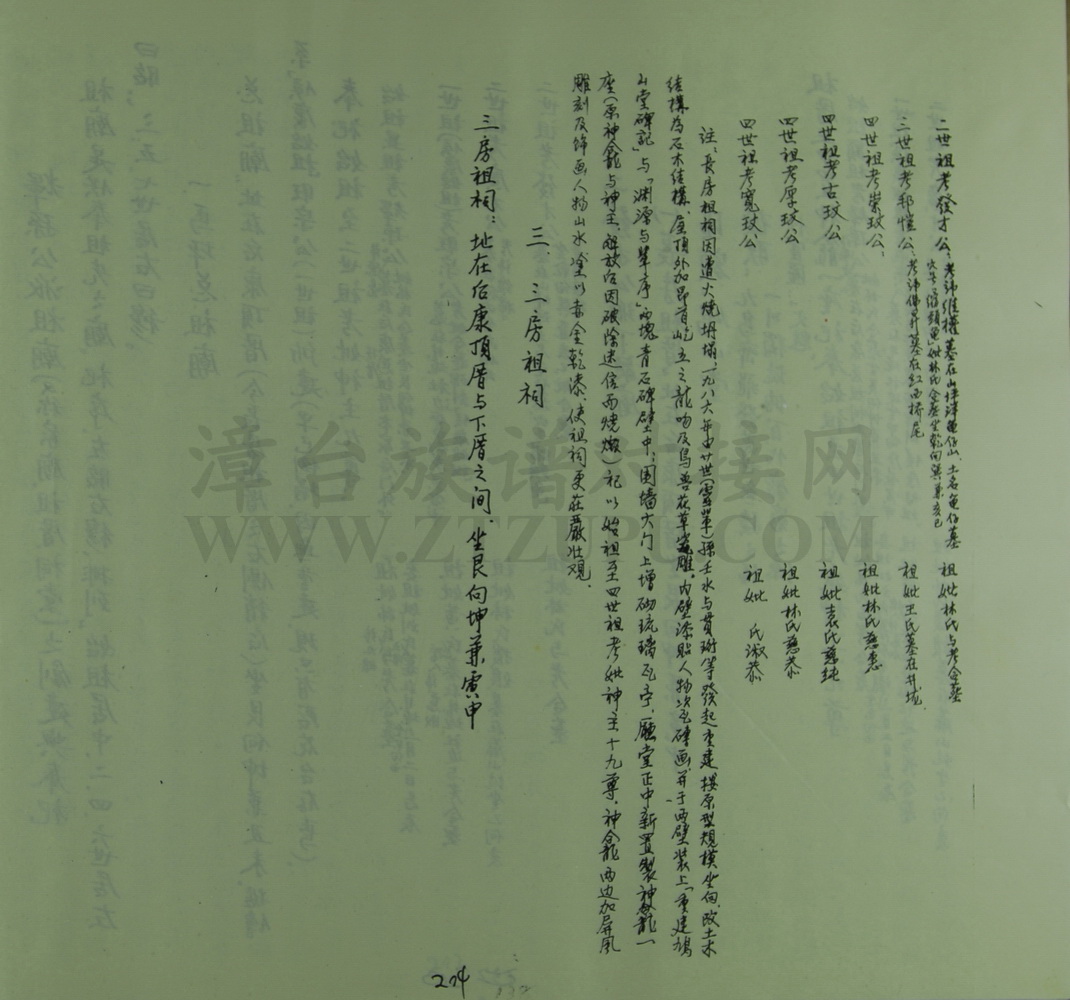 二世祖考發才公:考諱維權墓在山坪洋龜仔山、土名龜仔墓 祖妣林氏与考合墓
火号 龜妣林氏合墓坐乾向巽兼亥巳
三世祖考邦愷公:考諱佛昇墓在紅西桥尾 祖妣王氏墓在井坑
四世祖考崇玟公: 祖妣林氏慈惠
四世祖考古玟公 祖妣袁氏慈純
四世祖考厚玟公 祖妣林氏慈恭
四世祖考寬玟公 祖妣 氏淑恭
註:長房祖祠因遭火燒坍塌、一九八六年由廿世(雲革)孫壬水与貫珩等發起重建按原型規模坐向、改土木
结構為石木结構、屋頂外加昂首屹立之龍吻及鳥兽花草瓷雕、内壁漆貼人物次瓦磚画并于两壁装上「重建鴻
山堂碑記」与「渊源与輩序」两塊青石碑壁中;围墙大门上增砌琉璃瓦亭、廳堂正中新置製神龕一
座(原神龕与神主、解放后因破除迷信而燒燬)祀以始祖至四世祖考妣神主十九尊、神龕两边加屏風
雕刻及饰画人物山水塗以赤金乾漆、使祖祠更莊嚴壮观。
三、三房祖祠
三房祖祠:址在后康頂厝与下厝之间、坐艮向坤兼寅申
274
漳台族谱对接网
WWW.ZTZUPU.COM